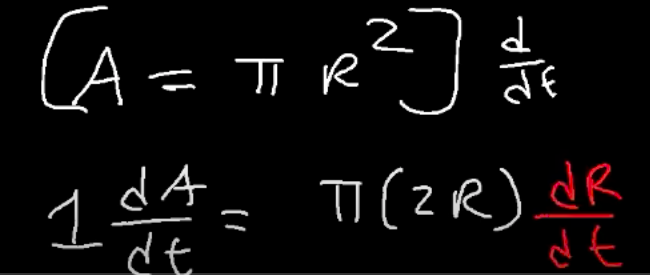 [A = π R²] d/dt
1 dA/dt = π(2R) dR/dt